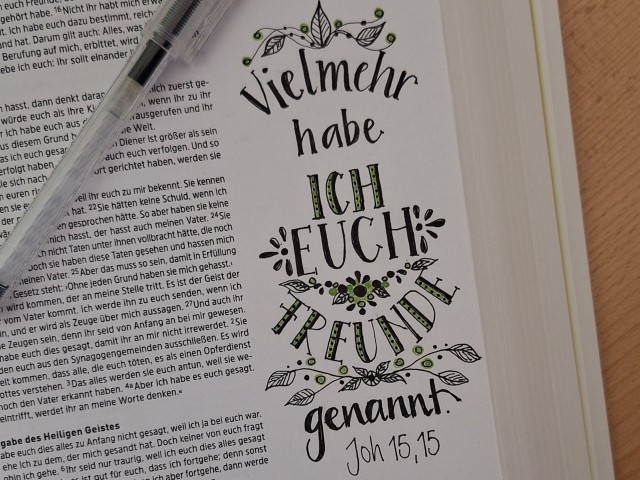 euch Freunde, de
gehört habe. ¹⁶Nicht ihr habt mich erwä
t. Ich habe euch dazu bestimmt, reich
und hat. Darum gilt auch: Alles, was
Berufung auf mich, erbittet, wird
ebe ich euch: Ihr sollt einander
n hasst, dann denkt daran
mich zuerst ge-
würde euch als ihre
wenn ihr zu ihr
r ich habe euch aus
ausgerufen und ihr
s diesem Grund
die Welt.
as ich euch gesagt
Diener ist größer als sein
erfolgt haben,
auch euch verfolgen. Und so
ort gerichtet haben, werden sie
weil ihr euch zu mir bekennt. Sie kennen
hat. ²²Sie hätten keine Schuld, wenn ich
gesprochen hätte. So aber haben sie keine
mich hasst, der hasst auch meinen Vater. ²⁴Sie
nicht Taten unter ihnen vollbracht hätte, die noch
Doch sie haben diese Taten gesehen und hassen mich
meinen Vater. ²⁵Aber das muss so sein, damit in Erfüllung
Gesetz steht: ›Ohne jeden Grund haben sie mich gehasst.‹
wird kommen, der an meine Stelle tritt. Es ist der Geist der
vom Vater kommt. Ich werde ihn zu euch senden, wenn ich
in, und er wird als Zeuge über mich aussagen. ²⁷Und auch ihr
e Zeugen sein, denn ihr seid von Anfang an bei mir gewesen.
habe euch dies gesagt, damit ihr an mir nicht irrewerdet. ²Sie
den euch aus den Synagogengemeinden ausschließen. Es wird
eit kommen, dass alle, die euch töten, es als einen Opferdienst
ottes verstehen. ³Das alles werden sie euch antun, weil sie we-
noch den Vater erkannt haben. ⁴ᵃAber ich habe es euch gesagt.
eintrifft, werdet ihr an meine Worte denken.«
gabe des Heiligen Geistes
abe euch dies alles zu Anfang nicht gesagt, weil ich ja bei euch war.
ehe ich zu dem, der mich gesandt hat. Doch keiner von euch fragt
ohin ich gehe. ⁶Ihr seid nur traurig, weil ich euch dies alles gesagt
es ist gut für euch, dass ich fortgehe; denn sonst
ich aber fortgehe, dann werde
Vielmehr
habe
ICH
EUCH
FREUNDE
genannt.
Joh 15,15